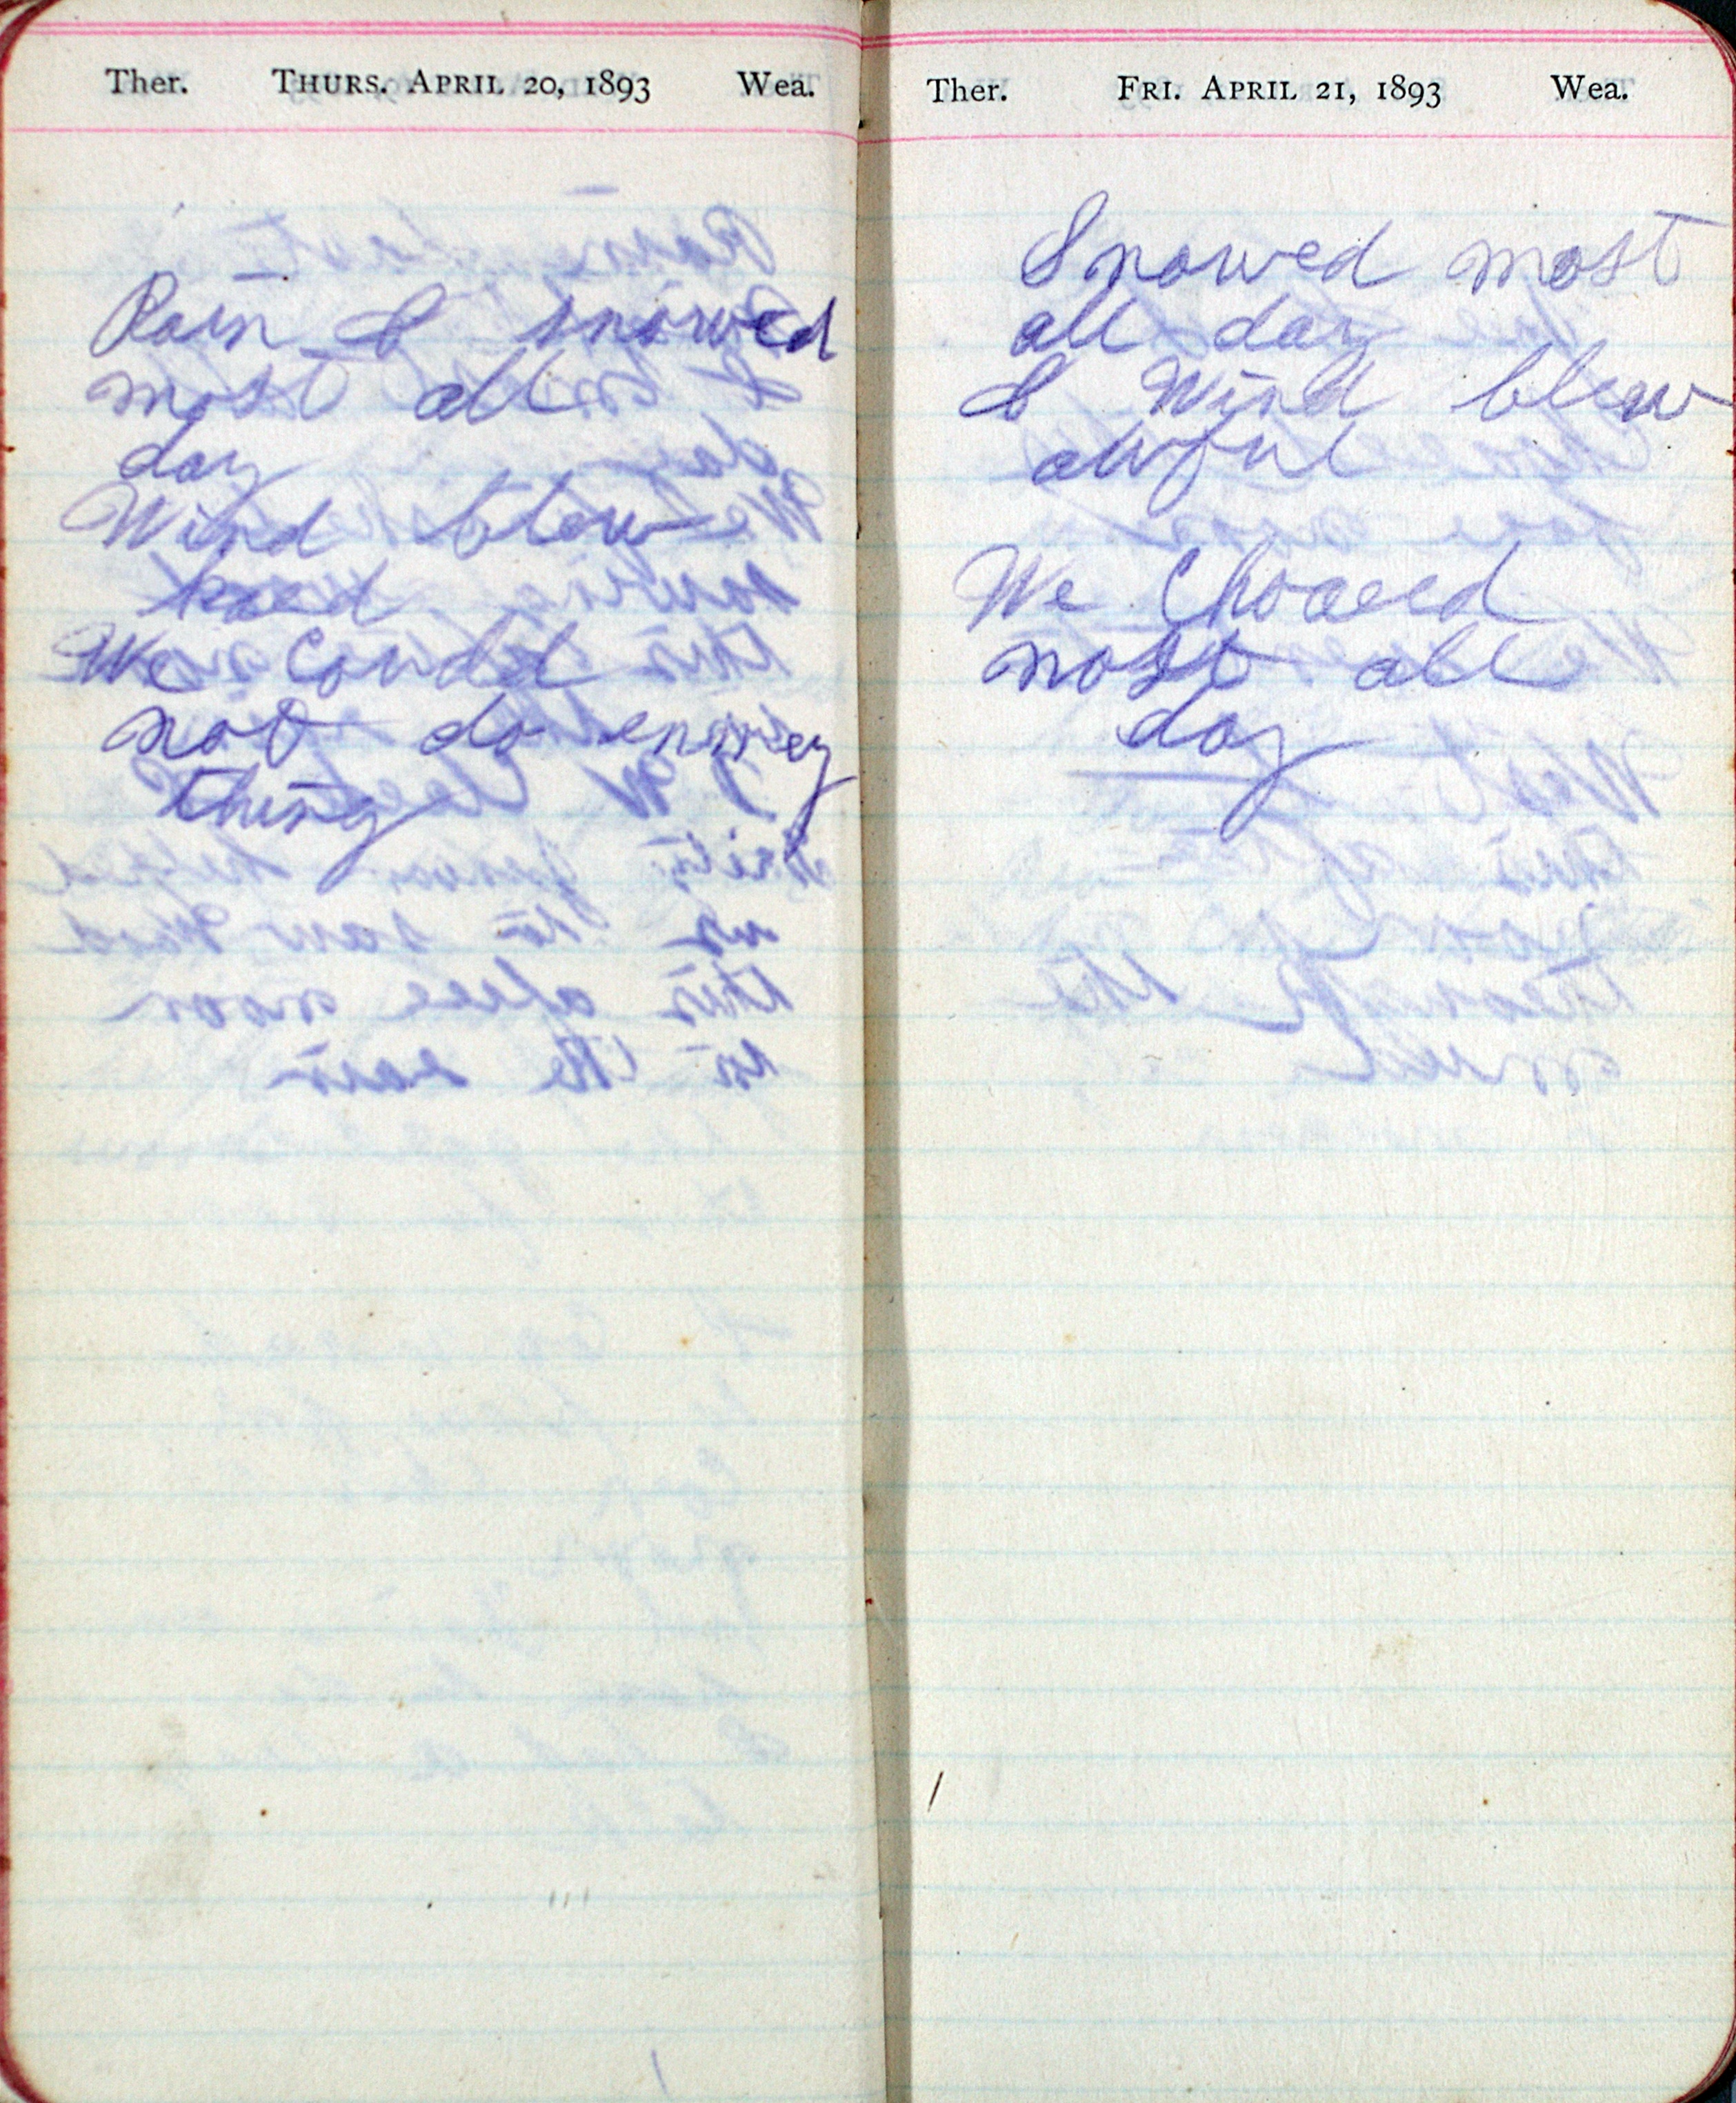 Ther. THURS. APRIL 20, 1893 Wea.
Rain & snowed
most all
day
Wind blew
hard
We Could
not do enney
thing
Ther. FRI. APRIL 21, 1893 Wea.
Snowed most
all day
& Wind blew
awful
We Choared
most all
day